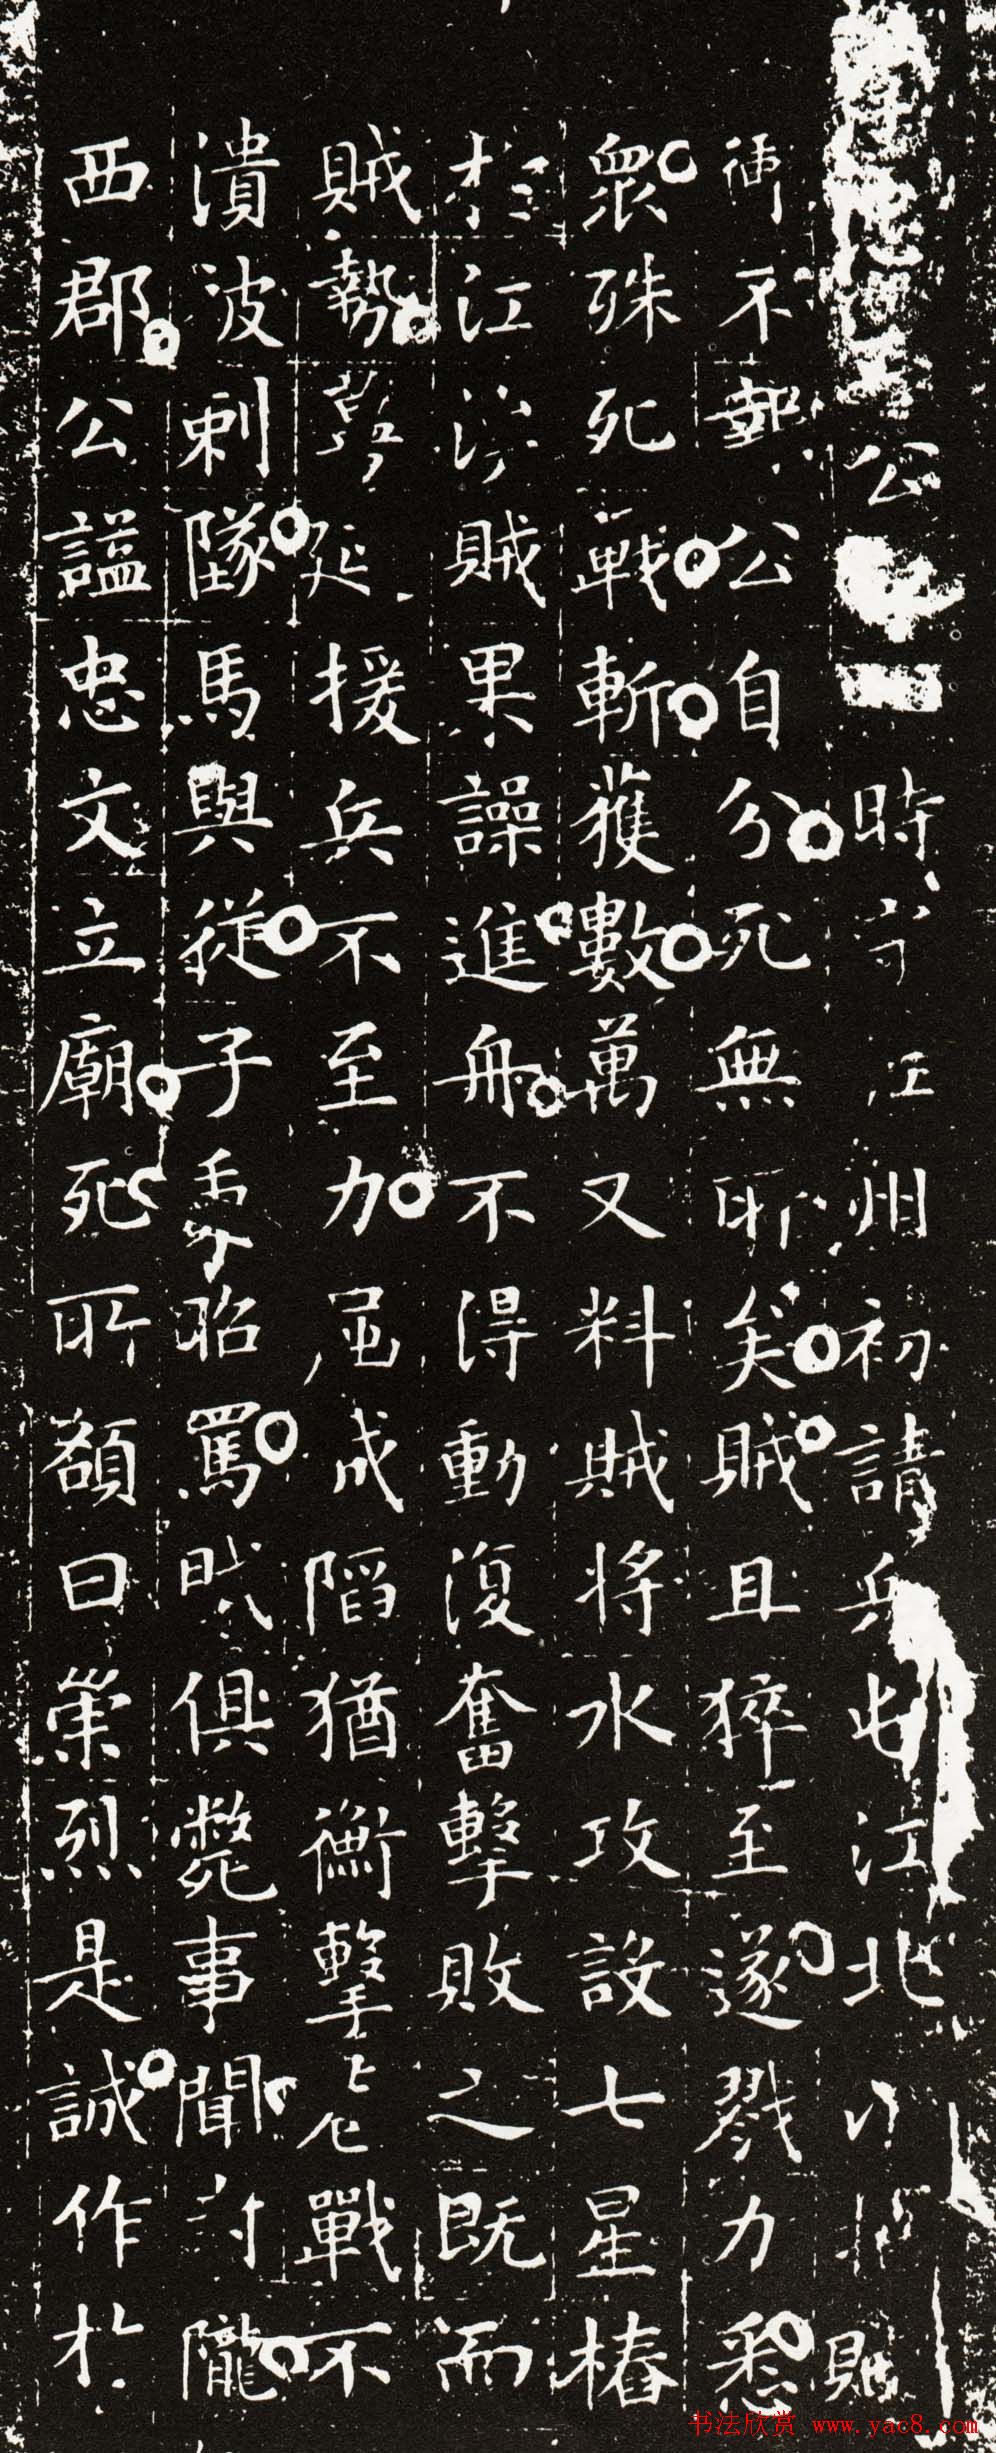 公時守江州初請兵屯江北以捍賊
衝不報公自分死無所矣賊且猝至遂戮力悉
眾殊死戰斬獲數萬又料賊將水攻設七星樁
於江涘賊果譟進舟不得動復奮擊敗之既而
賊勢蔓延援兵不至力屈城陷猶衝擊巷戰不
潰被刺墜馬與從子秉昭罵賊俱斃事聞封隴
西郡公諡忠文立廟死所額曰崇烈是誠作於
书法欣赏 www.yac8.com